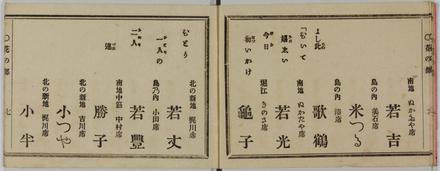 〇花の部
南地 ぬかたや席
若吉
島の内 美石席
米つる
島の内 席
歌鶴
よし此
「むいて
嬉太い
南地 ぬかたや席
若光
今日
堀江 きのさ席
龜子
むとり
一人の
北の新地 梶川席
若丈
島乃内 小田席
二人
若豊
連
南地中筋 中村席
勝子
北の新地 吉川席
小つや
北の新地 梶川席
小半
〇花の部
七